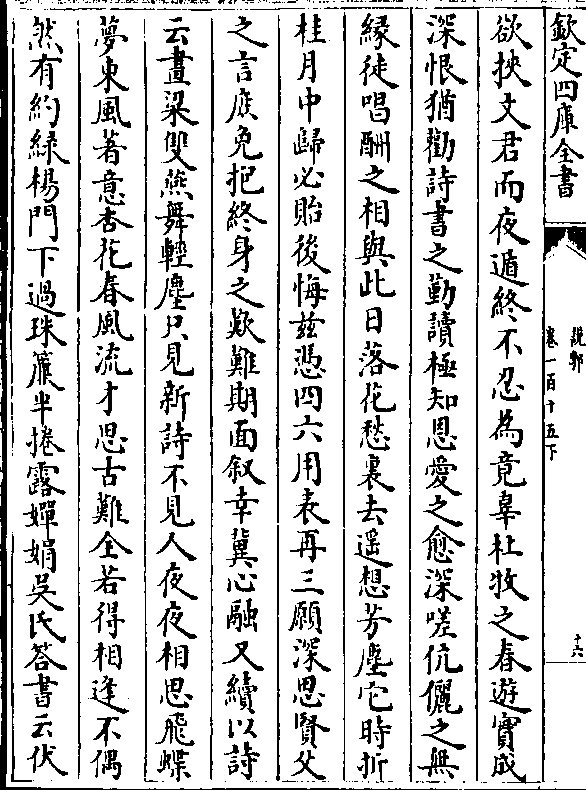 欽定四庫全書
說郛
卷一百十五下
十六
欲挾文君而夜遁終不忍為竟辜杜牧之春遊實成
深恨猶勸詩書之勤讀極知恩愛之愈深嗟伉儷之無
緣徒唱酬之相與此日落花愁裏去遥想芳塵它時折
桂月中歸必貽後悔兹憑四六用表再三願深思賢父
之言庶免抱終身之歎難期面叙幸冀心融又續以詩
云畫梁雙燕舞輕塵只見新詩不見人夜夜相思飛蝶
夢東風著意杏花春風流才思古難全若得相逢不偶
然有約緑楊門下過珠簾半捲露嬋娟吳氏答書云伏